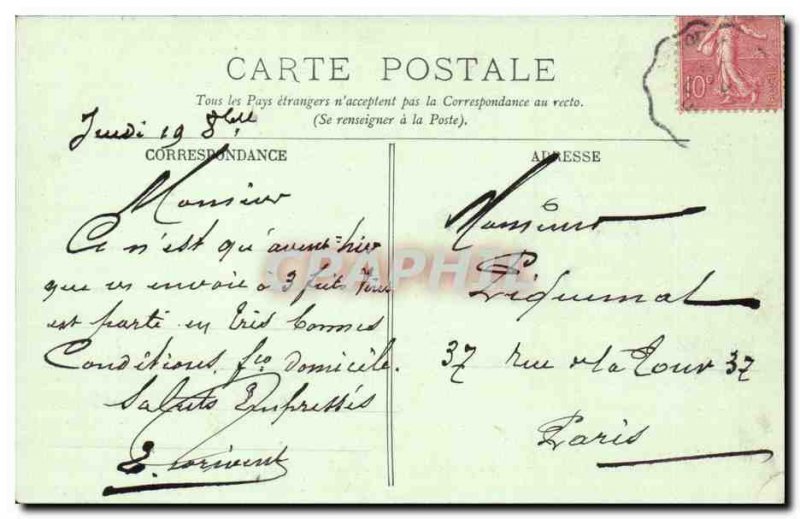 CARTE POSTALE
Tous les Pays étrangers n'acceptent pas la Correspondance au recto.
(Se renseigner à la Poste).
Jeudi 19 8bre
CORRESPONDANCE
Monsieur
Ce n'est qu'avant-hier
que vs envoie à 3 futs
est parti en très bonnes
Conditions, fco domicile.
Saluts Empressés
ADRESSE
Monsieur
Piquemal
37 rue de la Tour 37
Paris
10c
CPAPHIL